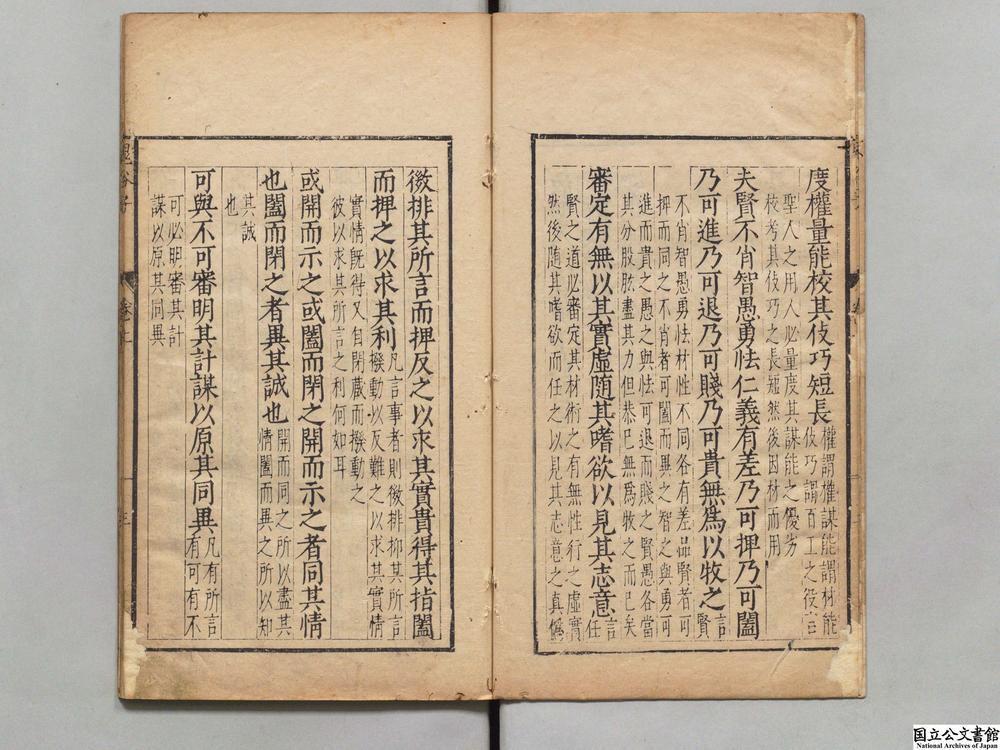 度權量能校其伎巧短長權謂權謀能謂材能
伎巧謂百工之役言
聖人之用人必量度其謀能之優劣
校考其伎巧之長短然後因材而用
夫賢不肖智愚勇怯仁義有差乃可捭乃可闔
乃可進乃可退乃可賤乃可貴無為以牧之言
賢
不肖智愚勇怯材性不同各有差品賢者可
捭而同之不肖者可闔而異之智之與勇可
進而貴之愚之與怯可退而賤之賢愚各當
其分股肱盡其力但恭巳無為牧之而巳矣
審定有無以其實虛隨其嗜欲以見其志意言
任
賢之道必審定其材術之有無性行之虛實
然後隨其嗜欲而任之以見其志意之真僞
微排其所言而捭反之以求其實貴得其指闔
而捭之以求其利凡言事者則微排抑其所言
撥動以反難之以求其實情
實情既得又自閉藏而撥動之
彼以求其所言之利何如耳
或開而示之或闔而閉之開而示之者同其情
也闔而閉之者異其誠也開而同之所以盡其
情闔而異之所以知
其誠
也
可與不可審明其計謀以原其同異凡有所言
有可有不
可必明審其計
謀以原其同異
鬼谷子
卷上
三
国立公文書館
National Archives of Japan